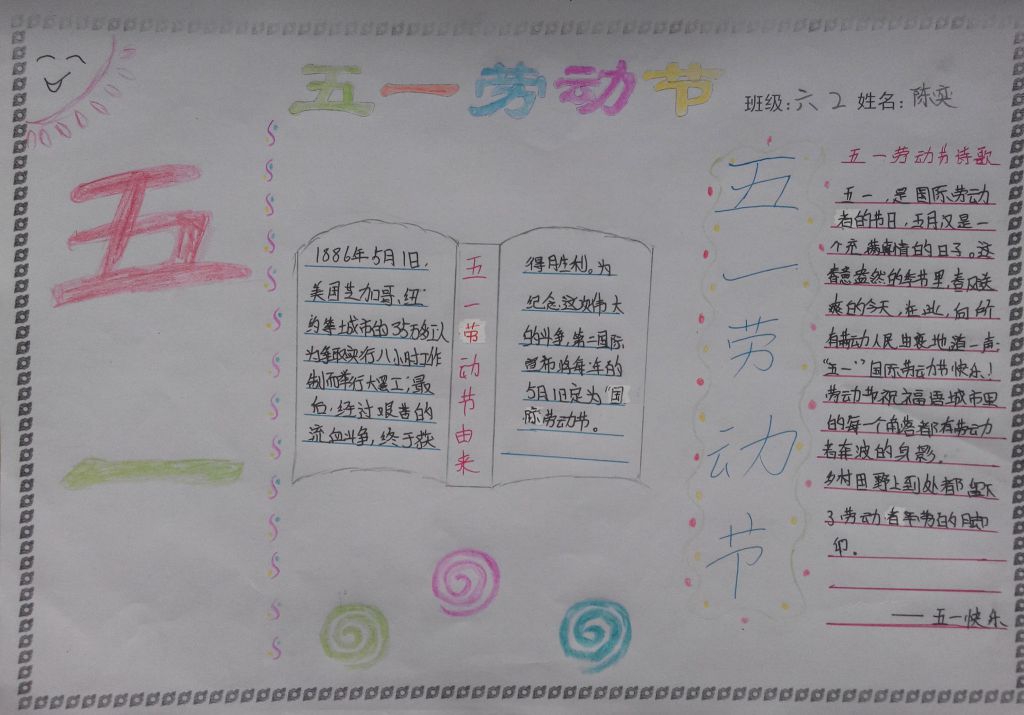 五一劳动节
班级:六2 姓名:陈奕
五
一
1886年5月1日,
美国芝加哥、纽
约等城市的35万多工人
为争取实行八小时工作
制而举行大罢工,最
后,经过艰苦的
流血斗争,终于获
五一劳动节由来
得胜利。为
纪念这次伟大
的斗争,第二国际
宣布将每年的
5月1日定为“国
际劳动节。
五一劳动节
五一劳动节诗歌
五一,是国际劳动
者的节日,五月又是一
个充满真情的日子。这
春意盎然的季节里,春风送
爽的今天,在此,向所
有劳动人民由衷地道一声:
“五一”国际劳动节快乐!
劳动节祝福语城市里
的每一个角落都有劳动
者奔波的身影.
乡村田野上到处都留下
了劳动者辛劳的脚
印。
——五一快乐